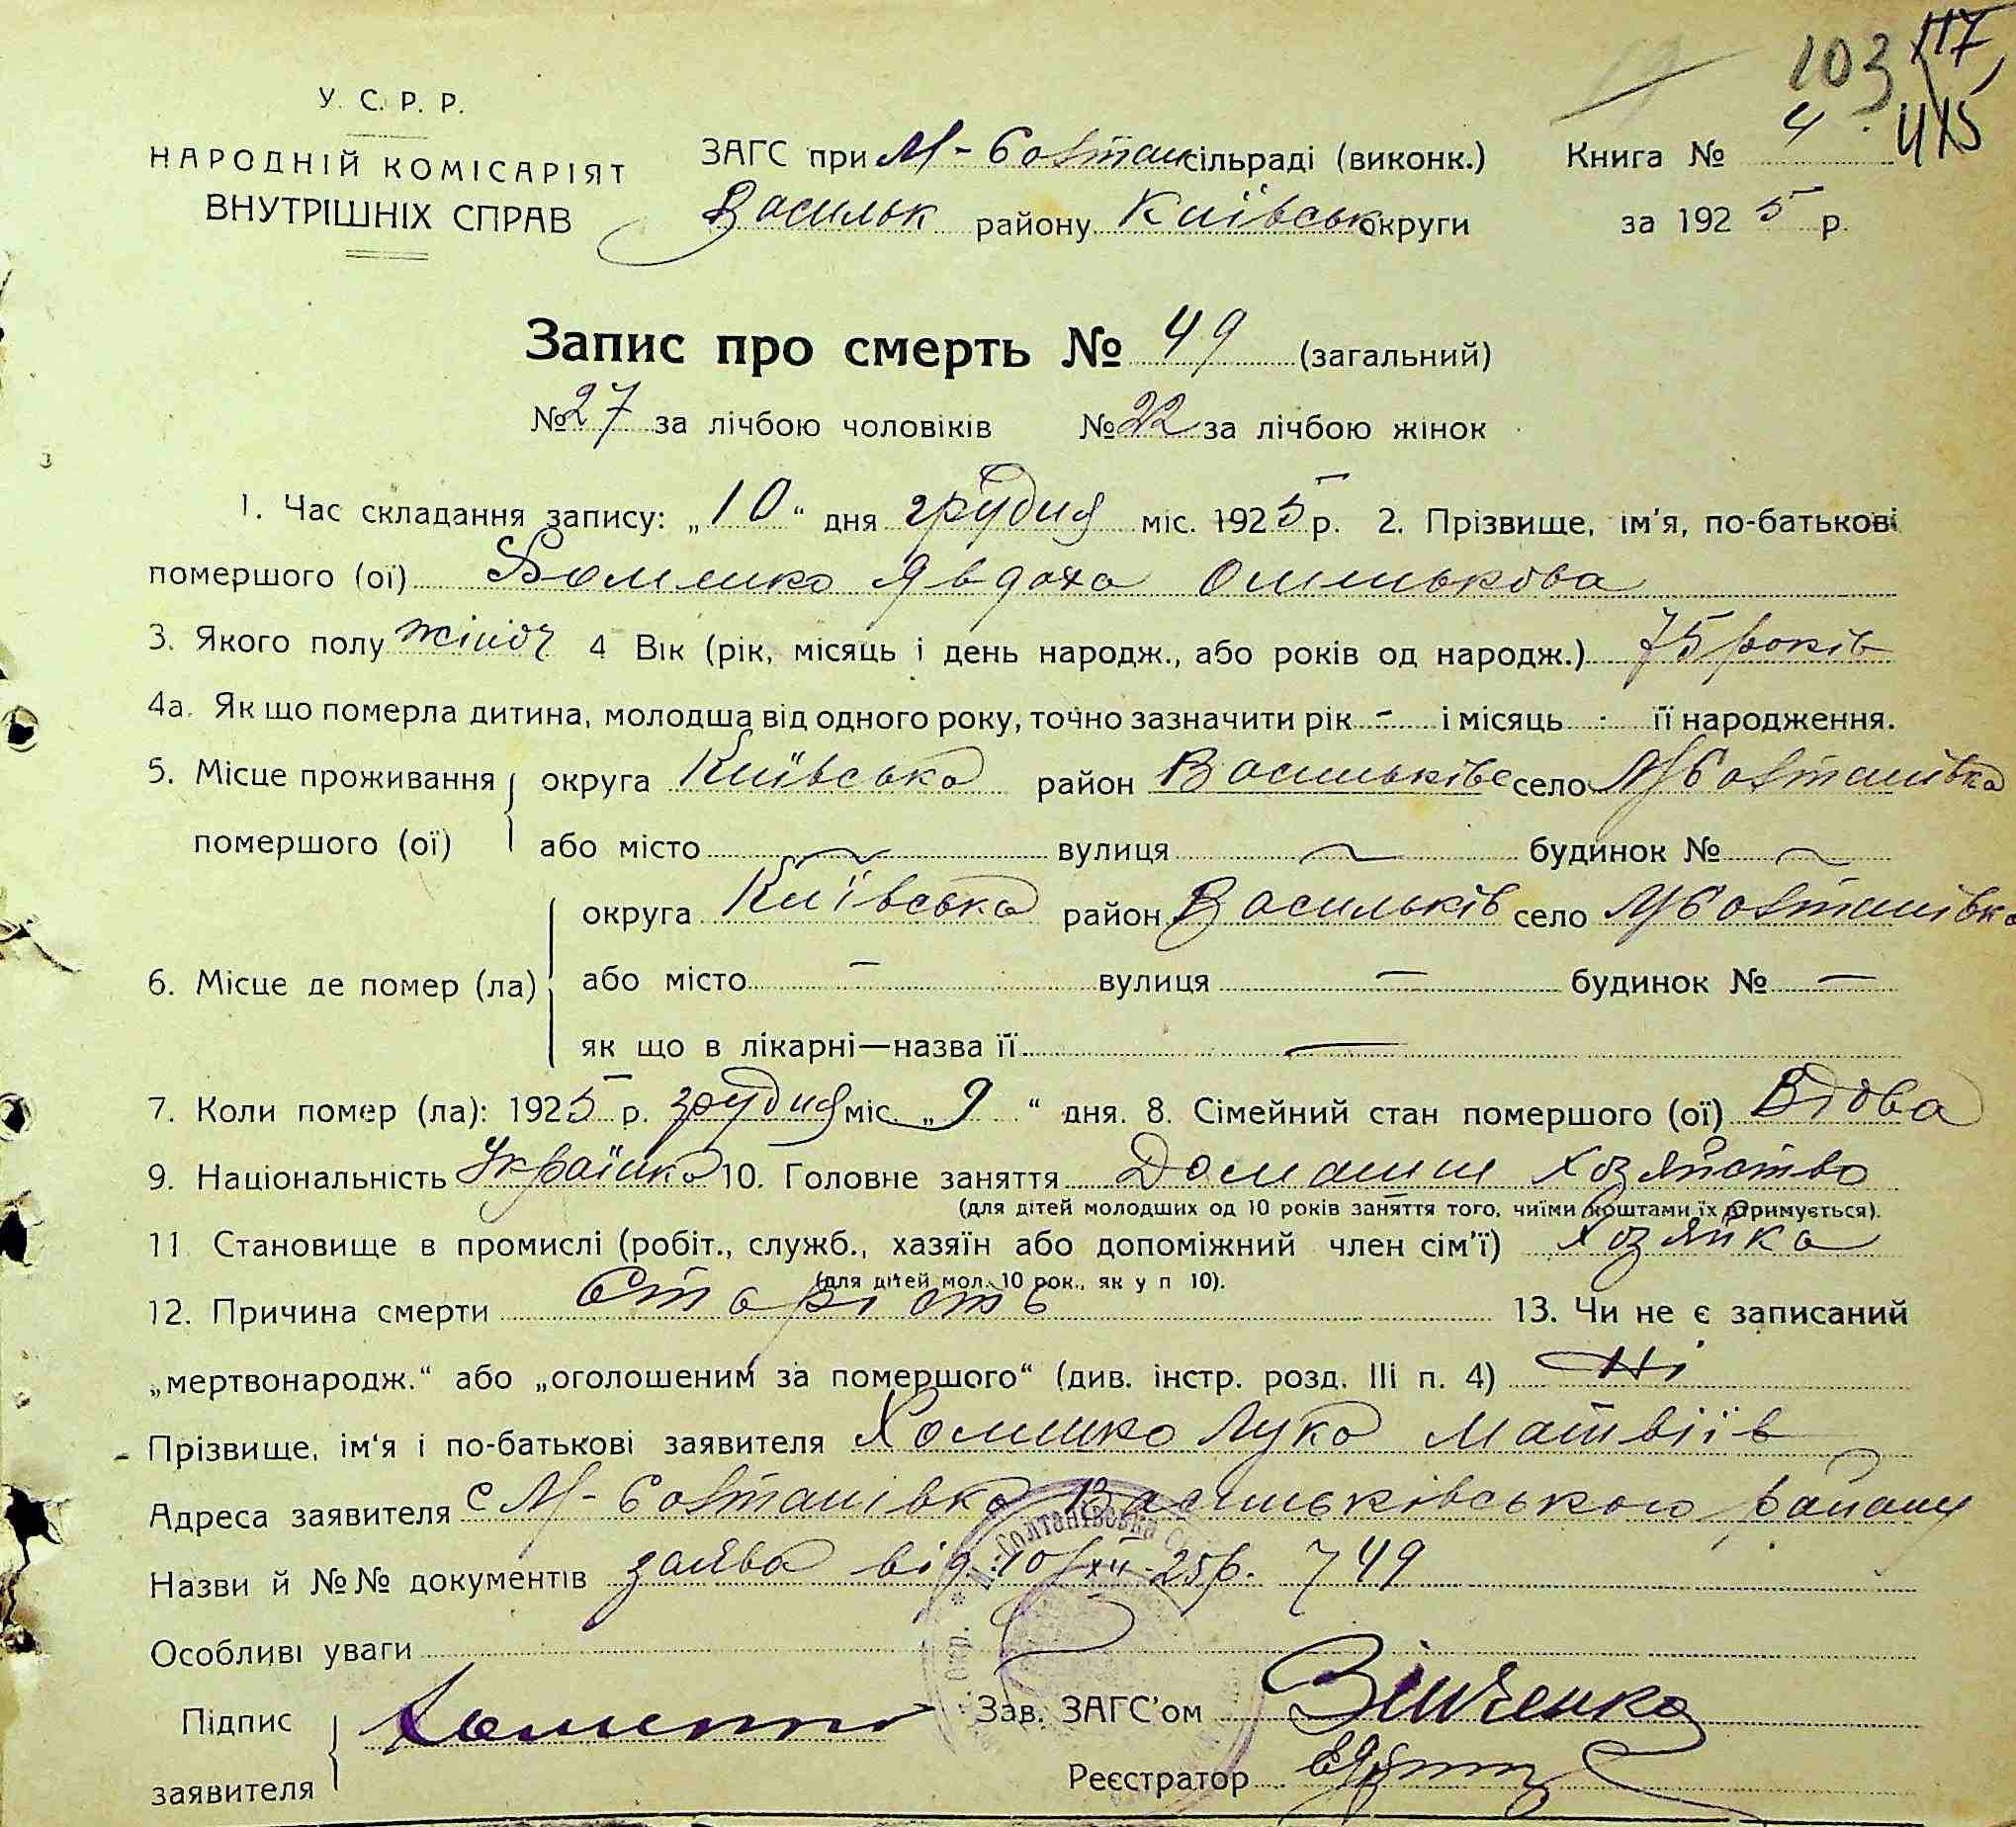 103 117
415
У. С. Р. Р.
НАРОДНІЙ КОМІСАРІЯТ
ВНУТРІШНІХ СПРАВ
ЗАГС при М-Болтан сільраді (виконк.)
Васильк району Київськ округи
Книга № 4
за 1925 р.
Запис про смерть № 49 (загальний)
№ 27 за лічбою чоловіків № 22 за лічбою жінок
1. Час складання запису: „10“ дня грудня міс. 1925 р. 2. Прізвище, ім'я, по-батькові
помершого (ої) Хоменко Явдоха
3. Якого полу жіноч 4 Вік (рік, місяць і день народж., або років од народж.) 75 років
4а. Як що померла дитина, молодша від одного року, точно зазначити рік - і місяць - її народження.
5. Місце проживання помершого (ої) округа Київська район Васильківс село М Болтанівка
або місто — вулиця — будинок № —
6. Місце де помер (ла) округа Київська район Васильків село М Болтанівка
або місто — вулиця — будинок № —
як що в лікарні—назва її —
7. Коли помер (ла): 1925 р. грудня міс. „9“ дня. 8. Сімейний стан помершого (ої) Вдова
9. Національність Українка 10. Головне заняття Домашнє хозяйство
(для дітей молодших од 10 років заняття того, чиїми коштами їх утримується).
11 Становище в промислі (робіт., служб., хазяїн або допоміжний член сім'ї) Хозяйка
(для дітей мол. 10 рок., як у п 10).
12. Причина смерти Старість 13. Чи не є записаний
„мертвонародж.“ або „оголошеним за помершого“ (див. інстр. розд. III п. 4) Ні
Прізвище, ім'я і по-батькові заявителя Хоменко Лука Матвіїв
Адреса заявителя с М-Болтанівка Васильківського району
Назви й №№ документів заява від 10/XII-25р. 749
Особливі уваги
Підпис заявителя Хоменко Зав. ЗАГС'ом Зінченко
Реєстратор